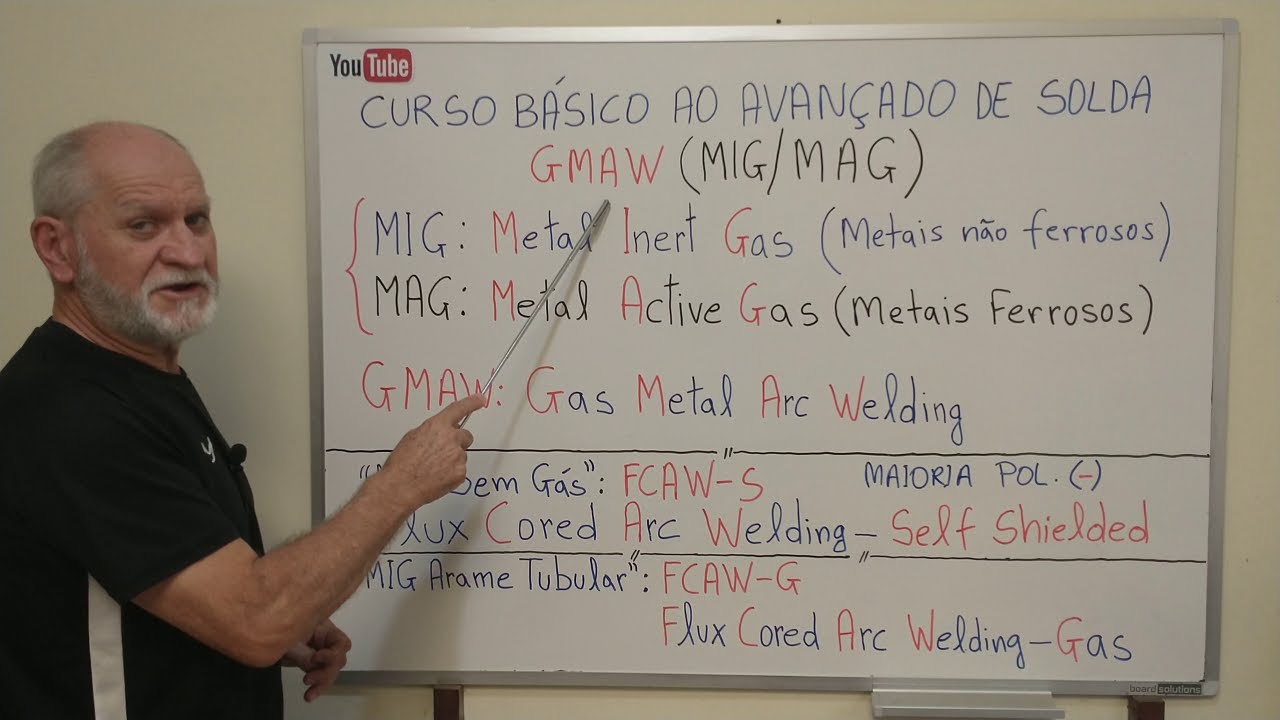 YouTube
CURSO BÁSICO AO AVANÇADO DE SOLDA
GMAW (MIG/MAG)
MIG: Metal Inert Gas (Metais não ferrosos)
MAG: Metal Active Gas (Metais Ferrosos)
GMAW: Gas Metal Arc Welding
Sem Gás": FCAW-S MAIORIA POL. (-)
Flux Cored Arc Welding - Self Shielded
MIG Arame Tubular": FCAW-G
Flux Cored Arc Welding - Gas
boardsolutions